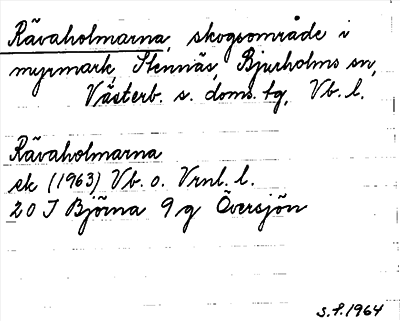 Rävaholmarna, skogsområde i
myrmark, Stennäs, Bjurholms sn,
Västerb. s. doms. tg, Vb. l.
Rävaholmarna
sk (1963) Vb. o. Vrnl. l.
20 J Björna 9 g Översjön
S.F. 1964